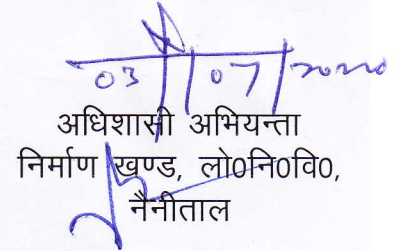 03/07/2020
अधिशासी अभियन्ता
निर्माण खण्ड, लो0नि0वि0,
नैनीताल